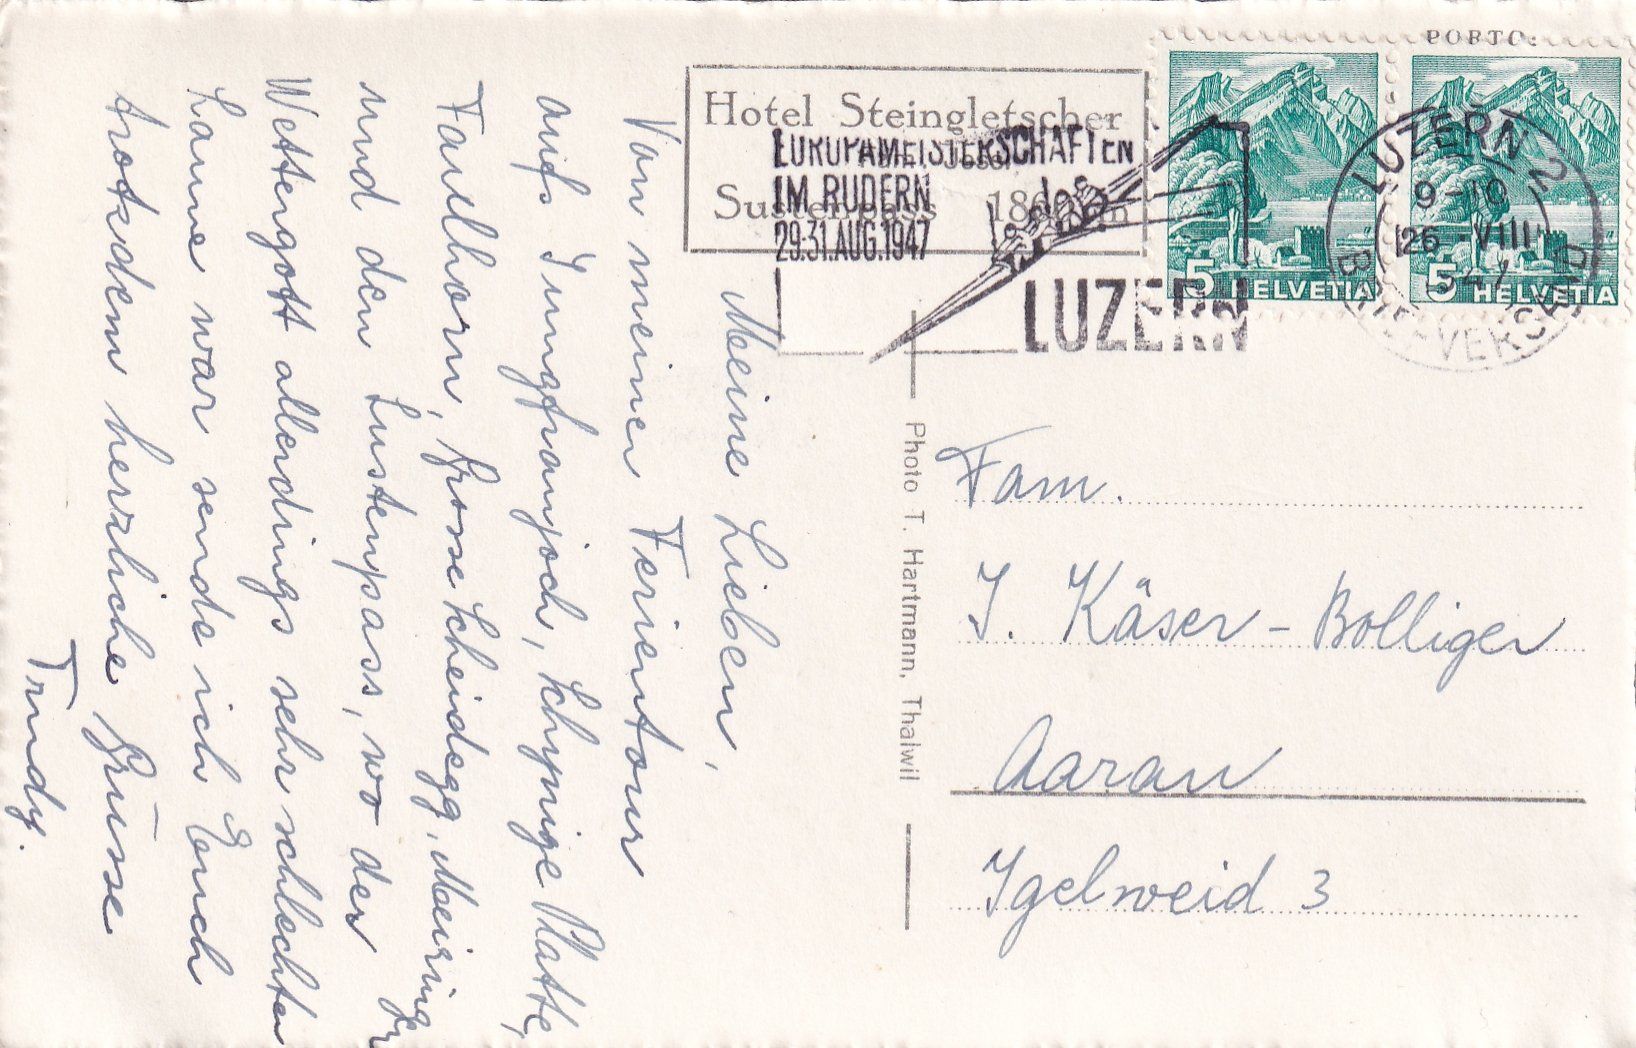 Meine Lieben,
Von meiner Ferientour
aufs Jungfraujoch, Schynige Platte,
Faulhorn, grosse Scheidegg, Meiringen
und den Sustenpass, wo der
Wettergott allerdings sehr schlechter
Laune war sende ich Euch
trotzdem herzliche Grüsse
Trudy.
Hotel Steingletscher
Sustenpass 1866 m
EUROPAMEISTERSCHAFTEN
IM RUDERN
29-31.AUG.1947
LUZERN
PORTO:
5 HELVETIA
5 HELVETIA
LUZERN 2
9-10
26 VIII
47
BRIEFVERSAND
Photo T. Hartmann, Thalwil
Fam.
J. Käser-Bolliger
Aarau
Igelweid 3